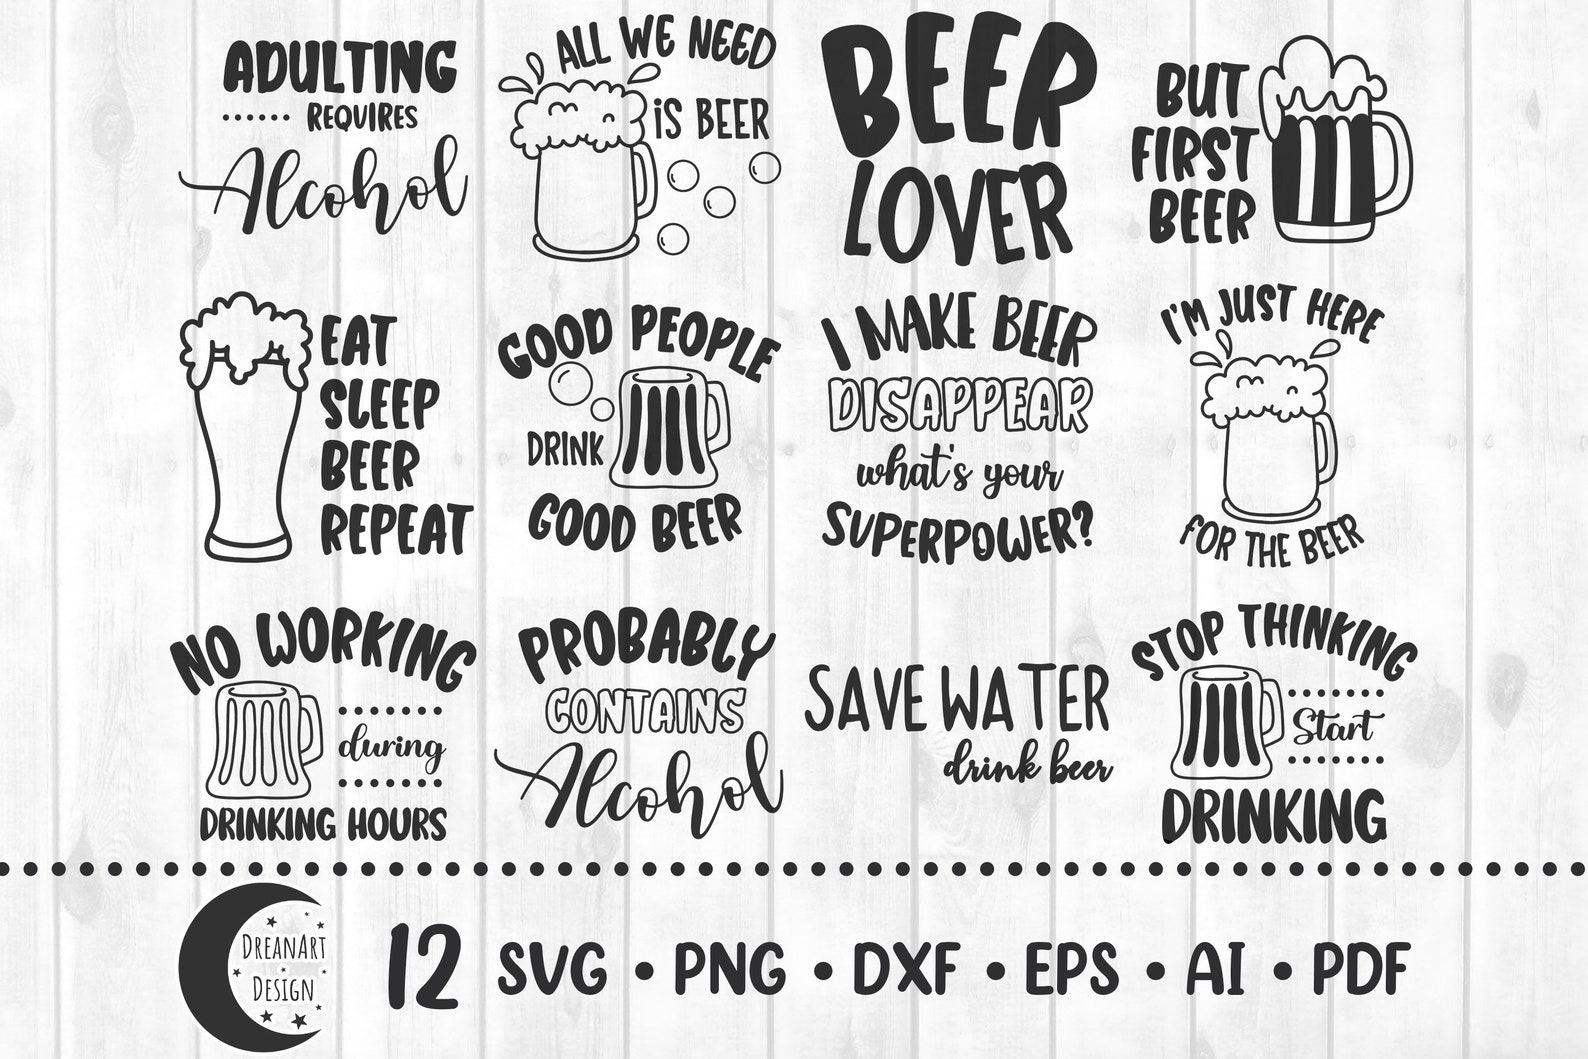 ADULTING
REQUIRES
Alcohol
ALL WE NEED
iS BEER
BEER
LOVER
BUT
FIRST
BEER
EAT
SLEEP
BEER
REPEAT
GOOD PEOPLE
DRINK
GOOD BEER
I MAKE BEER
DISAPPEAR
what's your
SUPERPOWER?
I'M JUST HERE
FOR THE BEER
NO WORKING
during
DRINKING HOURS
PROBABLY
CONTAINS
Alcohol
SAVE WATER
drink beer
STOP THINKING
Start
DRINKING
DREANART
DESIGN
12 SVG • PNG • DXF • EPS • AI • PDF